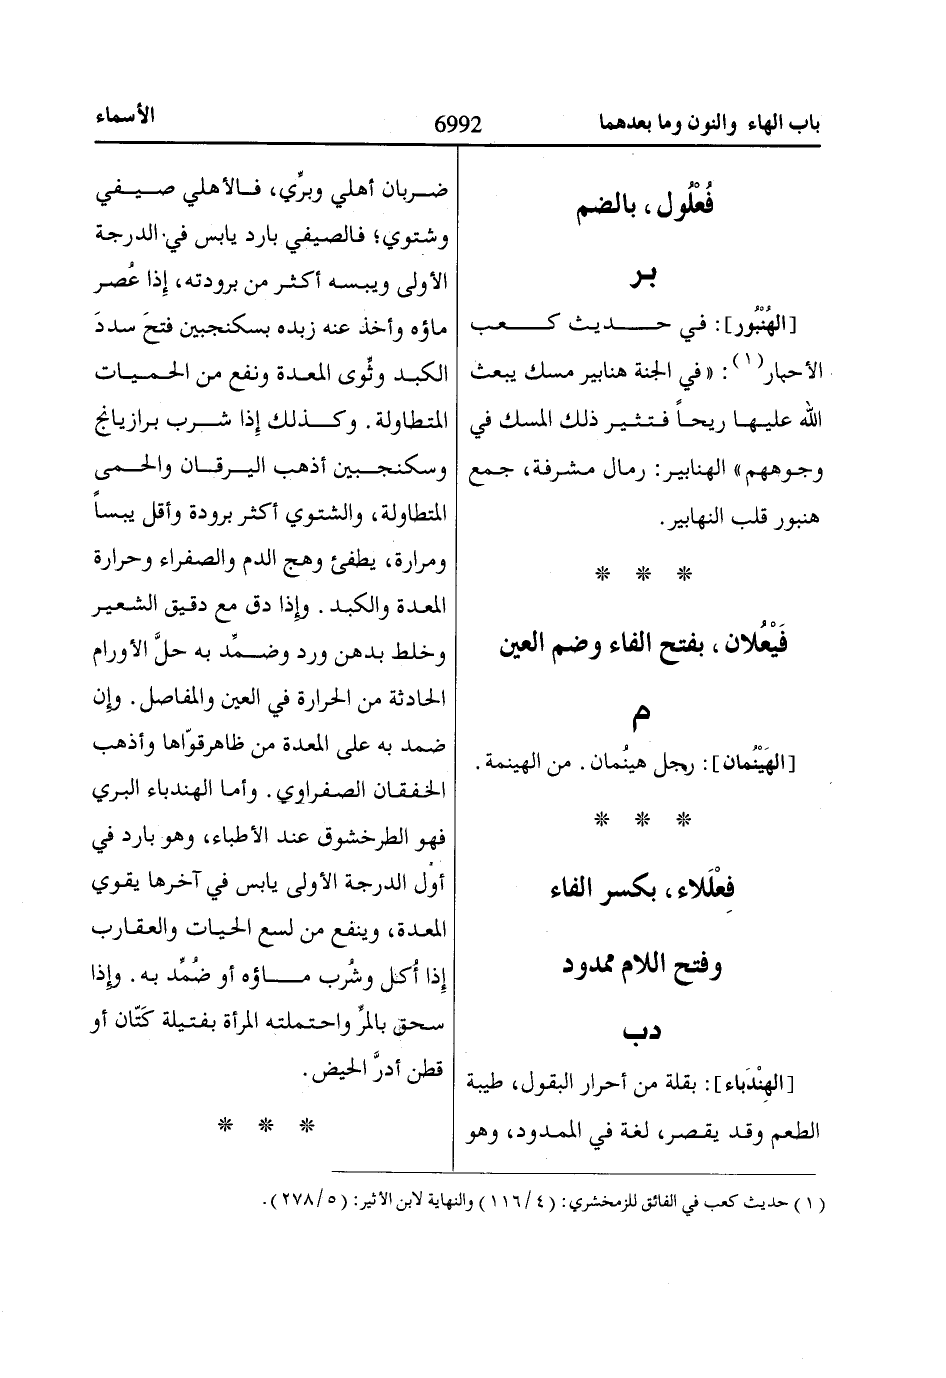 باب الهاء والنون وما بعدهما
6992
الأسماء
فُعْلُول، بالضم
بر
[الهُنْبُور]: في حديث كعب
الأحبار(١): «في الجنة هنابير مسك يبعث
الله عليها ريحاً فتثير ذلك المسك في
وجوههم» الهنابير: رمال مشرفة، جمع
هنبور قلب النهابير.
* * *
فَيْعُلان، بفتح الفاء وضم العين
م
[الهَيْنُمان]: رجل هينُمان. من الهينمة.
* * *
فِعْلَلاء، بكسر الفاء
وفتح اللام ممدود
دب
[الهِنْدَباء]: بقلة من أحرار البقول، طيبة
الطعم وقد يقصر، لغة في الممدود، وهو
ضربان أهلي وبرِّي، فالأهلي صيفي
وشتوي؛ فالصيفي بارد يابس في الدرجة
الأولى ويبسه أكثر من برودته، إذا عُصر
ماؤه وأخذ عنه زبده بسكنجبين فتحَ سددَ
الكبد وقُوى المعدة ونفع من الحميات
المتطاولة. وكذلك إذا شرب برازيانج
وسكنجبين أذهب اليرقان والحمى
المتطاولة، والشتوي أكثر برودة وأقل يبساً
ومرارة، يطفئ وهج الدم والصفراء وحرارة
المعدة والكبد. وإذا دق مع دقيق الشعير
وخلط بدهن ورد وضمِّد به حلَّ الأورام
الحادثة من الحرارة في العين والمفاصل. وإن
ضمد به على المعدة من ظاهرقوّاها وأذهب
الخفقان الصفراوي. وأما الهندباء البري
فهو الطرخشوق عند الأطباء، وهو بارد في
أول الدرجة الأولى يابس في آخرها يقوي
المعدة، وينفع من لسع الحيات والعقارب
إذا أُكل وشُرب ماؤه أو ضُمِّد به. وإذا
سحق بالمرِّ واحتملته المرأة بفتيلة كَتّان أو
قطن أدرَّ الحيض.
* * *
(١) حديث كعب في الفائق للزمخشري: (٤/١١٦) والنهاية لابن الأثير: (٥/٢٧٨).